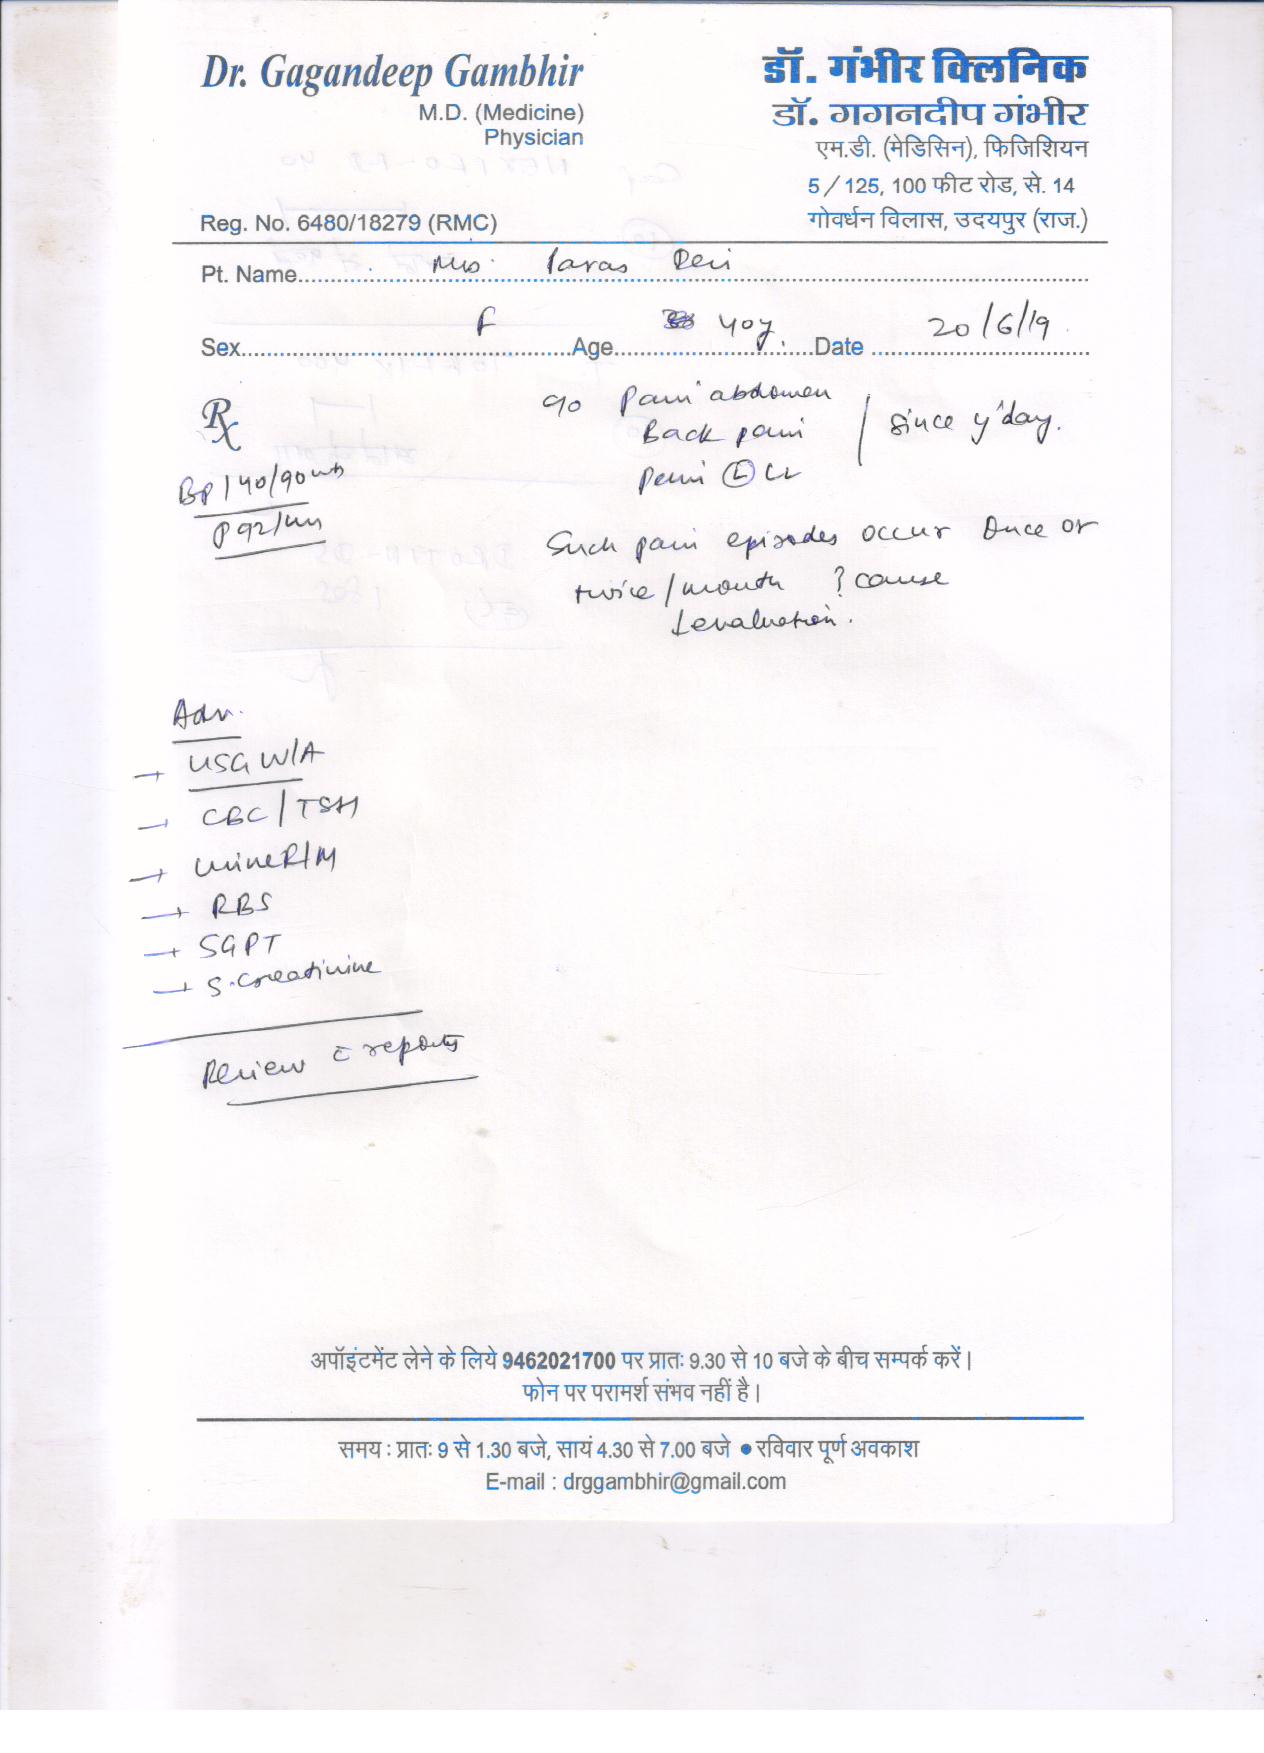 Dr. Gagandeep Gambhir
M.D. (Medicine)
Physician
Reg. No. 6480/18279 (RMC)
डॉ. गंभीर क्लिनिक
डॉ. गगनदीप गंभीर
एम.डी. (मेडिसिन), फिजिशियन
5 / 125, 100 फीट रोड, से. 14
गोवर्धन विलास, उदयपुर (राज.)
Pt. Name Mrs. Paras Devi
Sex F Age 40y. Date 20/6/19
Rx
c/o Pain abdomen
Back pain
Pain (L) LL
since y'day.
BP 140/90
P 92/min
Such pain episodes occur once or
twice/month ? cause
↓ evaluation.
Adv.
→ USG W/A
→ CBC / TSH
→ Urine R/M
→ RBS
→ SGPT
→ S. Creatinine
Review c̄ reports
अपॉइंटमेंट लेने के लिये 9462021700 पर प्रातः 9.30 से 10 बजे के बीच सम्पर्क करें।
फोन पर परामर्श संभव नहीं है।
समय : प्रातः 9 से 1.30 बजे, सायं 4.30 से 7.00 बजे ● रविवार पूर्ण अवकाश
E-mail : drggambhir@gmail.com